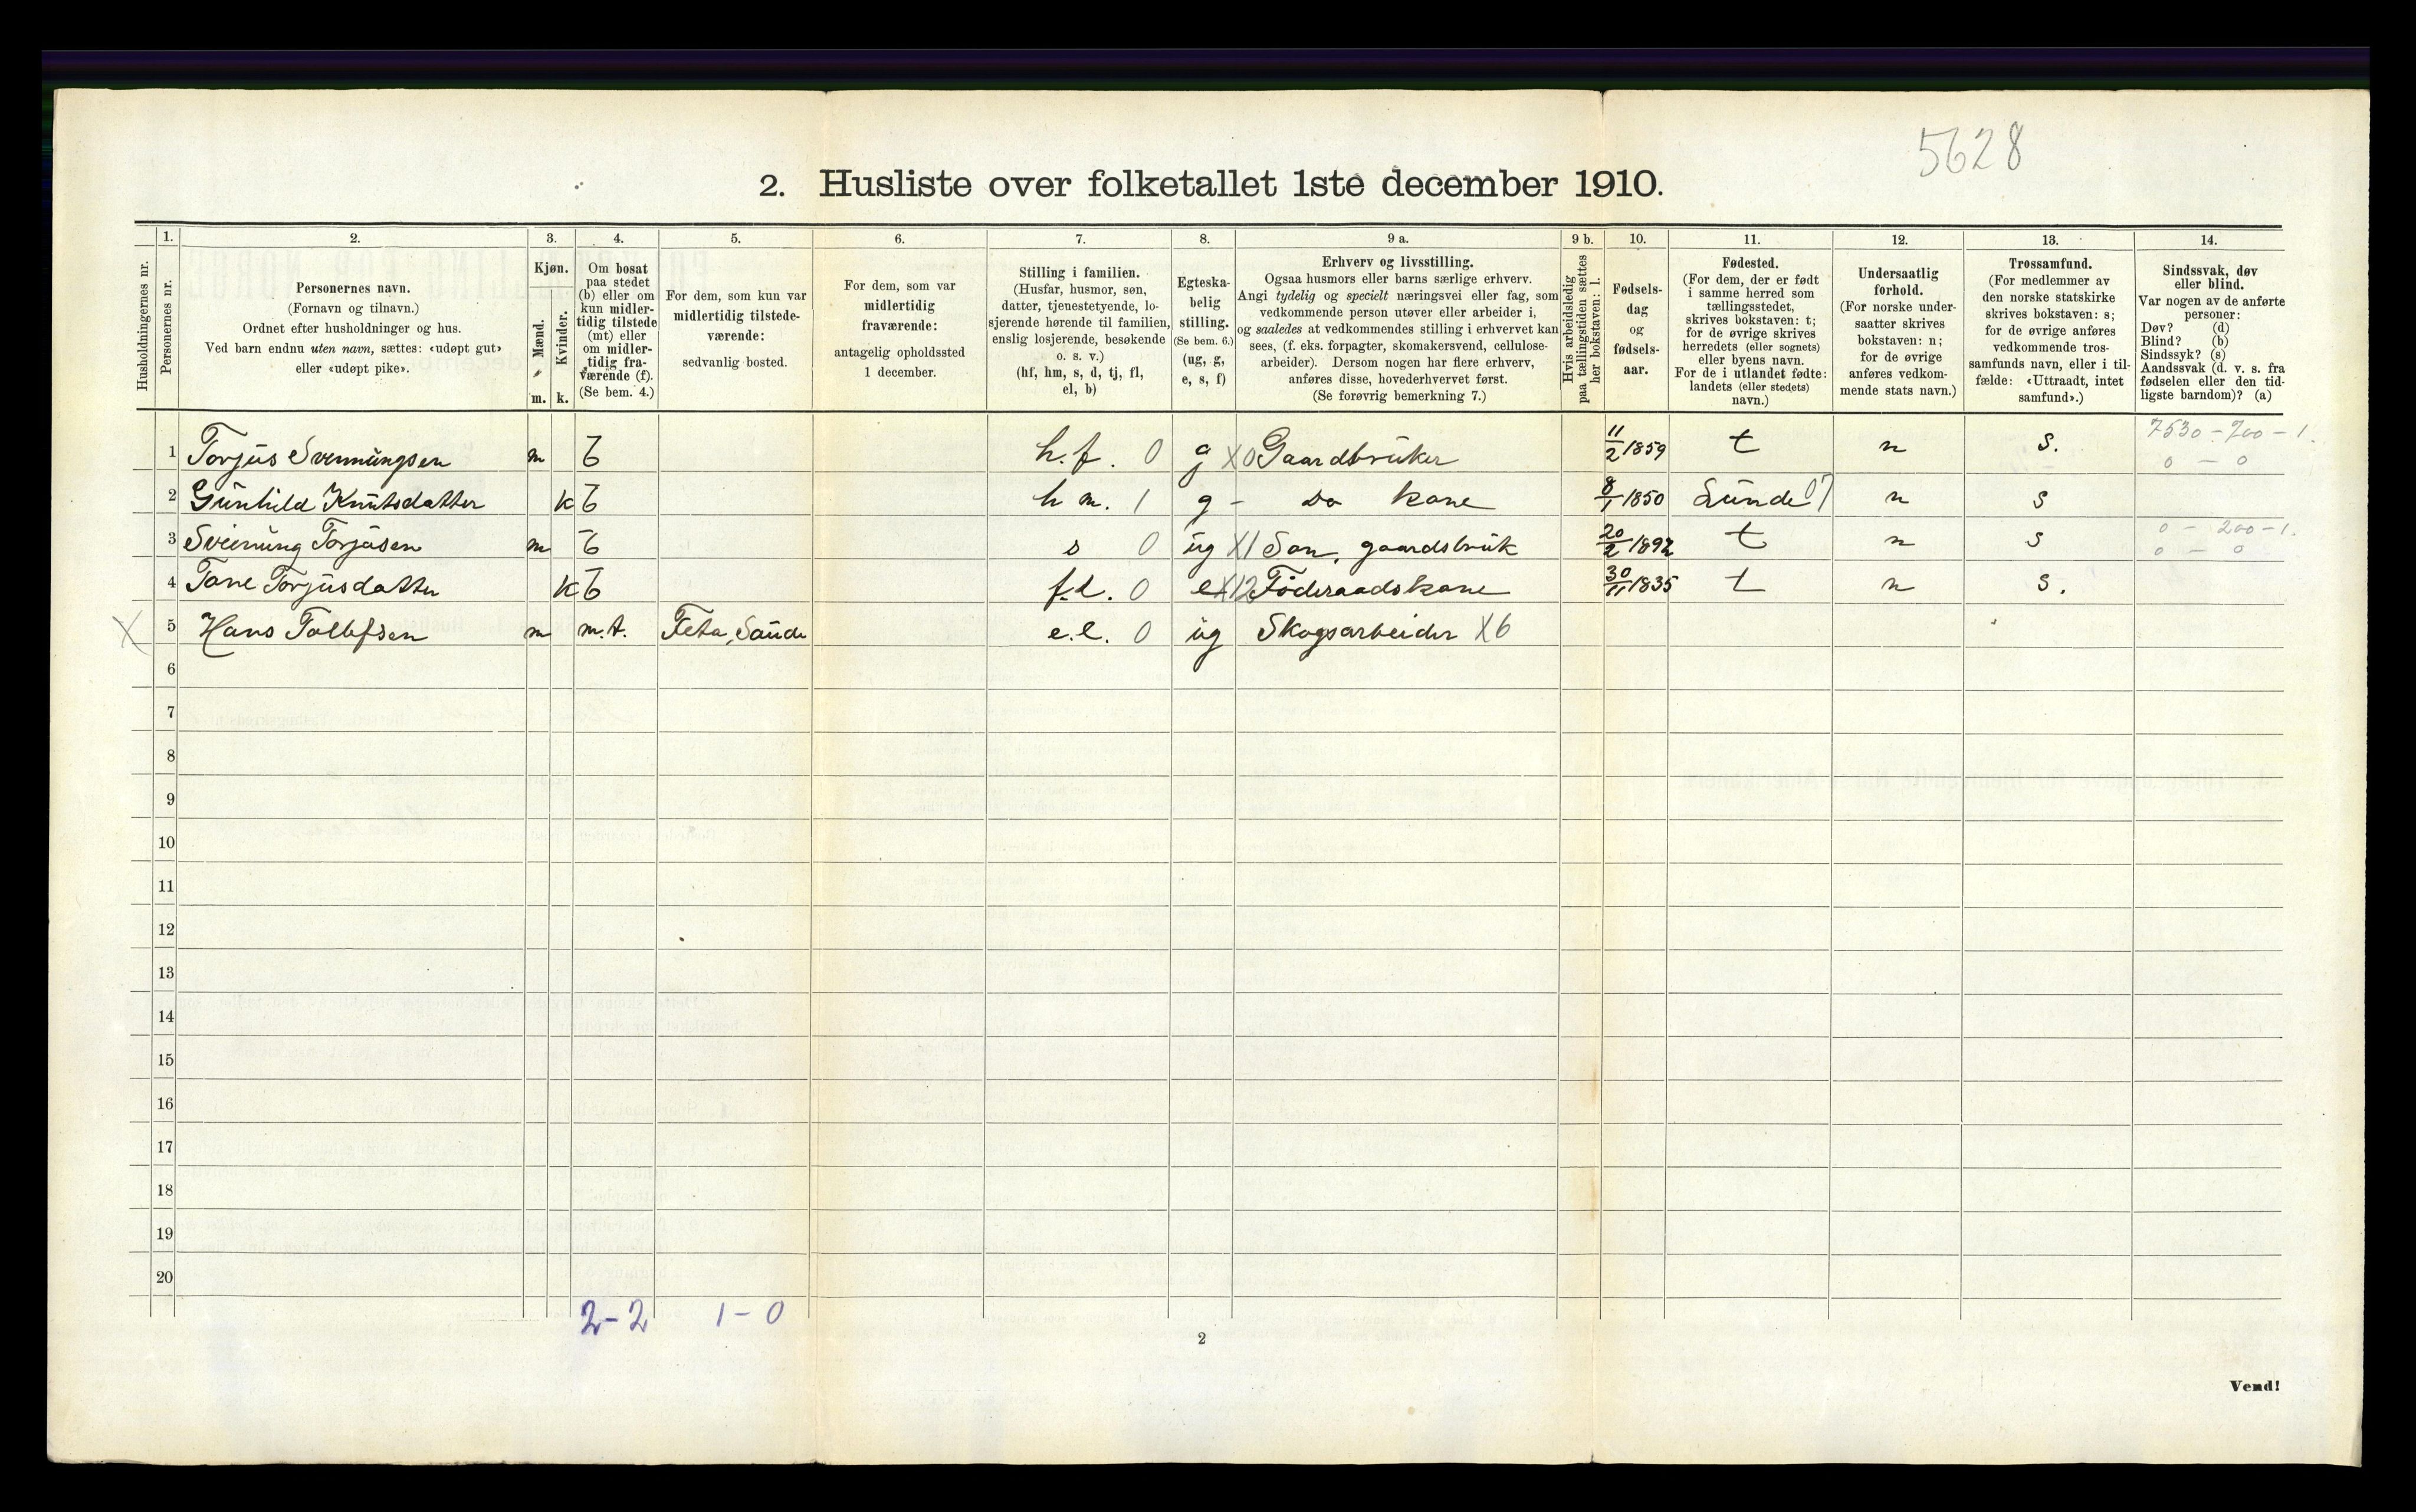 5628
2. Husliste over folketallet 1ste december 1910.
Husholdningernes nr.
1.
Personernes nr.
2.
Personernes navn.
(Fornavn og tilnavn.)
Ordnet efter husholdninger og hus.
Ved barn endnu uten navn, sættes: «udøpt gut»
eller «udøpt pike».
3.
Kjøn.
Mænd.
Kvinder.
m. k.
4.
Om bosat
paa stedet
(b) eller om
kun midler-
tidig tilstede
(mt) eller
om midler-
tidig fra-
værende (f).
(Se bem. 4.)
5.
For dem, som kun var
midlertidig tilstede-
værende:
sedvanlig bosted.
6.
For dem, som var
midlertidig
fraværende:
antagelig opholdssted
1 december.
7.
Stilling i familien.
(Husfar, husmor, søn,
datter, tjenestetyende, lo-
sjerende hørende til familien,
enslig losjerende, besøkende
o. s. v.)
(hf, hm, s, d, tj, fl,
el, b)
8.
Egteska-
belig
stilling.
(Se bem. 6.)
(ug, g,
e, s, f)
9 a.
Erhverv og livsstilling.
Ogsaa husmors eller barns særlige erhverv.
Angi tydelig og specielt næringsvei eller fag, som
vedkommende person utøver eller arbeider i,
og saaledes at vedkommendes stilling i erhvervet kan
sees, (f. eks. forpagter, skomakersvend, cellulose-
arbeider). Dersom nogen har flere erhverv,
anføres disse, hovederhvervet først.
(Se forøvrig bemerkning 7.)
9 b.
Hvis arbeidsledig
paa tællingstiden sættes
her bokstaven: l.
10.
Fødsels-
dag
og
fødsels-
aar.
11.
Fødested.
(For dem, der er født
i samme herred som
tællingsstedet,
skrives bokstaven: t;
for de øvrige skrives
herredets (eller sognets)
eller byens navn.
For de i utlandet fødte:
landets (eller stedets)
navn.)
12.
Undersaatlig
forhold.
(For norske under-
saatter skrives
bokstaven: n;
for de øvrige
anføres vedkom-
mende stats navn.)
13.
Trossamfund.
(For medlemmer av
den norske statskirke
skrives bokstaven: s;
for de øvrige anføres
vedkommende tros-
samfunds navn, eller i til-
fælde: «Uttraadt, intet
samfund».)
14.
Sindssvak, døv
eller blind.
Var nogen av de anførte
personer:
Døv? (d)
Blind? (b)
Sindssyk? (s)
Aandssvak (d. v. s. fra
fødselen eller den tid-
ligste barndom)? (a)
1 Torjus Svennungsen m b h.f. 0 g X0 Gaardbruker 11/2 1859 t n s. 7530-700-1. 0-0
2 Gunhild Knutsdatter k b h m. 1 g - Do kone 8/1 1850 Lunde 07 n s
3 Sveinung Torjusen m b s 0 ug X1 Søn, gaardsbruk 20/2 1892 t n s 0-200-1. 0-0
4 Tone Torjusdatter k b f.d. 0 e X12 Føderaadskone 30/11 1835 t n s.
X 5 Hans Tollefsen m m.t. Feta, Saude e.l. 0 ug Skogsarbeider X6
6
7
8
9
10
11
12
13
14
15
16
17
18
19
20
2-2 1-0
2
Vend!